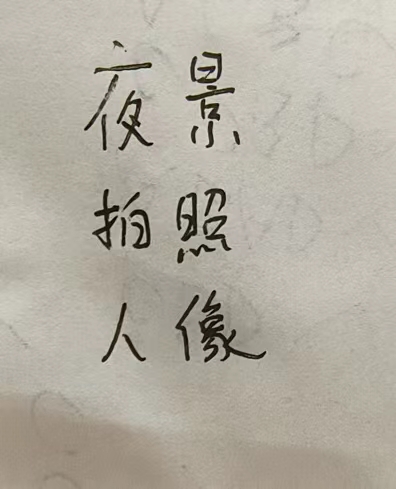 夜景
拍照
人像